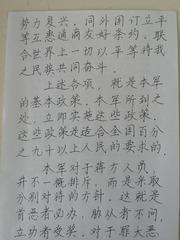 势力复兴。同外国订立平
等互惠通商友好条约，联
合世界上一切以平等待我
之民族共同奋斗。
上述各项，就是本军
的基本政策。本军所到之
处，立即实施这些政策。
这些政策是适合全国百分
之九十以上人民的要求的。
本军对于蒋方人员，
并不一概排斥，而是采取
分别对待的方针。这就是
首恶者必办，胁从者不问，
立功者受奖。对于罪大恶